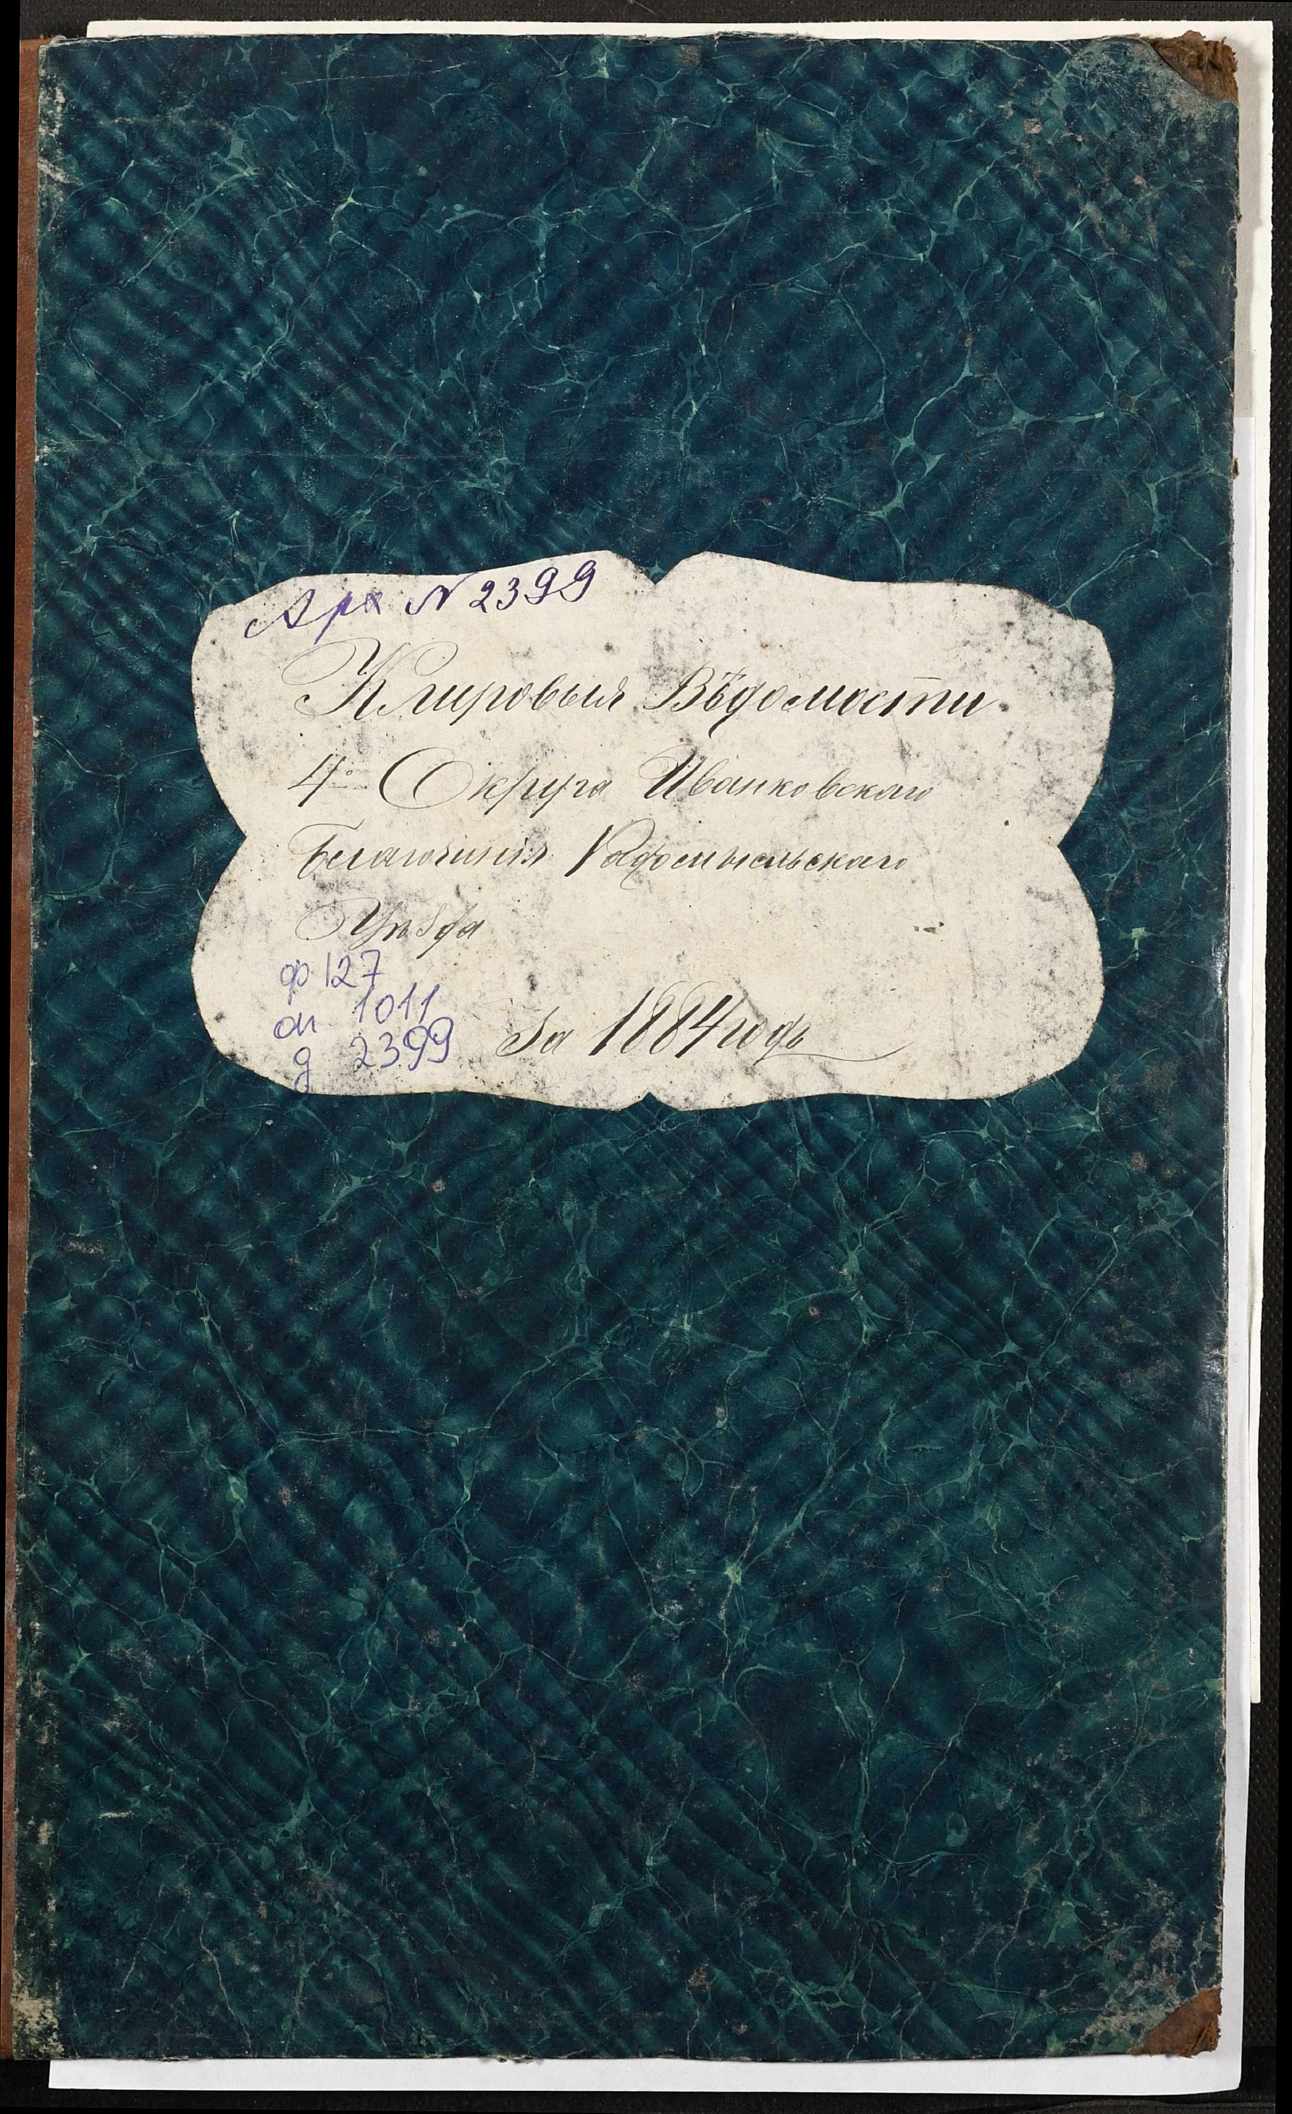 Арх № 2399
Клировыя Вѣдомости
4го Округа Иванковскаго
Благочинія Радомысльскаго
Уѣзда
ф 127
оп 1011
д 2399
За 1884 годъ